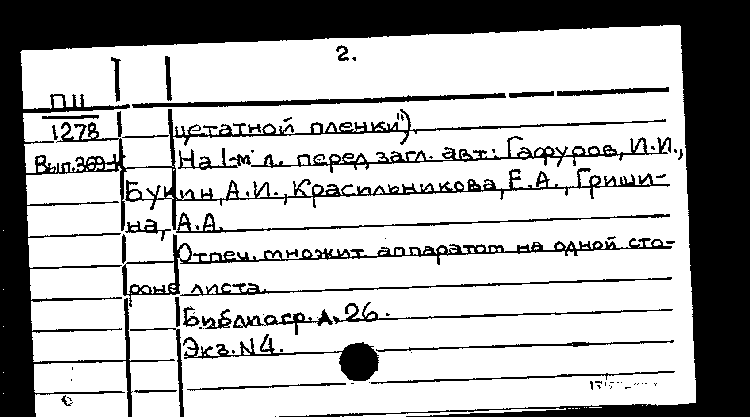 2.
ПЦ
1278
Вып.369-к
цетатной пленки").
На 1-м л. перед загл. авт.: Гафуров, И.И.,
Букин, А.И., Красильникова, Е.А., Гриши-
на, А.А.
Отпеч. множит. аппаратом на одной сто-
роне листа.
Библиогр. л. 26.
Экз. N4.